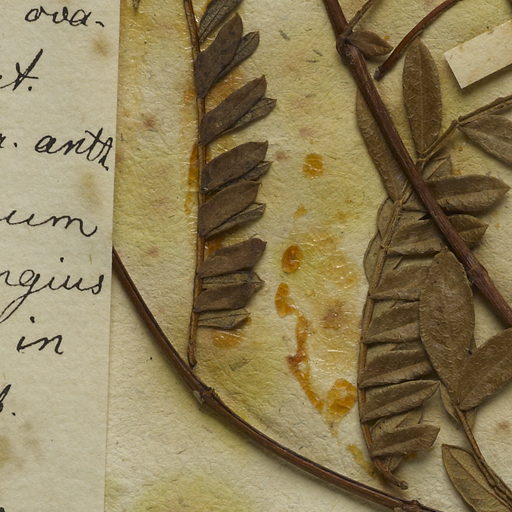 ova-
t.
r. anth
um
ngius
in